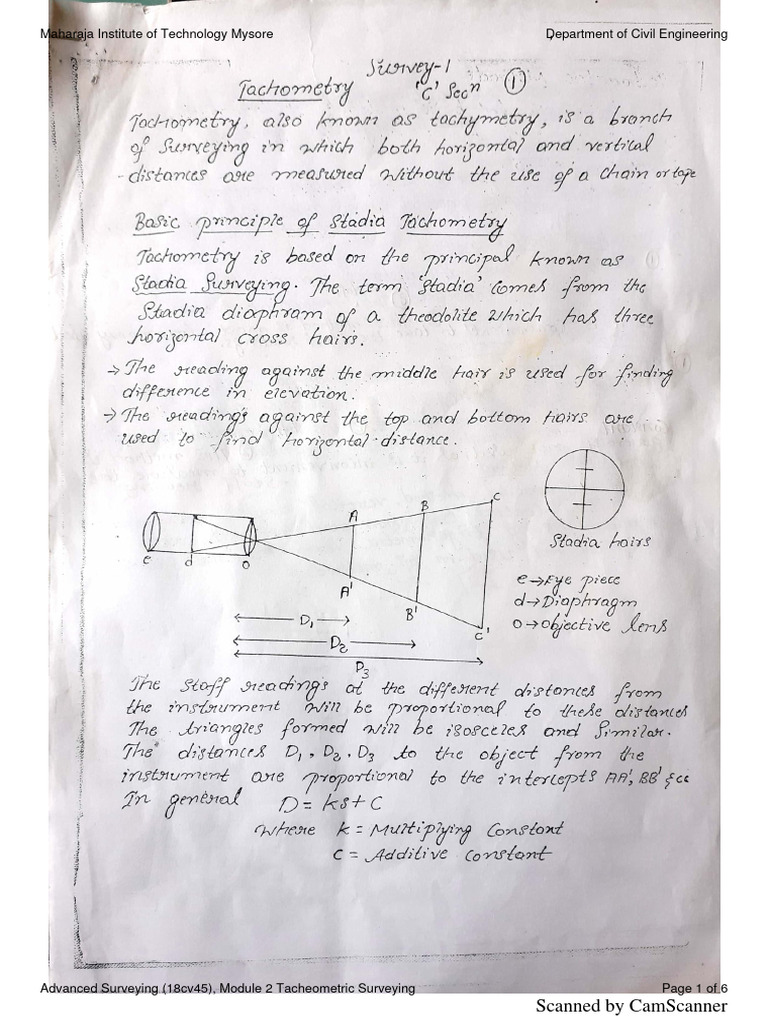 Maharaja Institute of Technology Mysore Department of Civil Engineering
Survey-1
Tachometry 'C' Secn 1
Tachometry, also known as tachymetry, is a branch
of surveying in which both horizontal and vertical
distances are measured without the use of a chain or tape
Basic principle of Stadia Tachometry
Tachometry is based on the principal known as
Stadia Surveying. The term 'Stadia' comes from the
Stadia diaphram of a theodolite which has three
horizontal cross hairs.
→ The reading against the middle hair is used for finding
difference in elevation.
→ The reading's against the top and bottom hairs are
used to find horizontal distance.
Stadia hairs
A B C
e d o
A' B' C'
e → Eye piece
d → Diaphragm
o → objective lens
D1
D2
D3
The staff reading's at the different distances from
the instrument will be proportional to these distances
The triangles formed will be isosceles and similar.
The distances D1, D2, D3 to the object from the
instrument are proportional to the intercepts AA', BB' & cc
In general D = ks + C
Where k = Multiplying Constant
C = Additive constant
Advanced Surveying (18cv45), Module 2 Tacheometric Surveying Page 1 of 6
Scanned by CamScanner